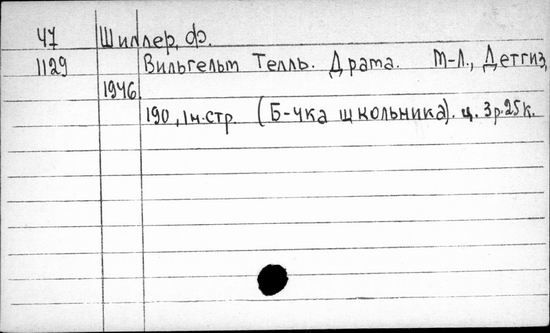 47 Шиллер, Ф.
1129 Вильгельм Телль. Драма. М-Л., Детгиз,
1946
190, 1 н.стр. (Б-чка школьника). ц. 3р.25к.